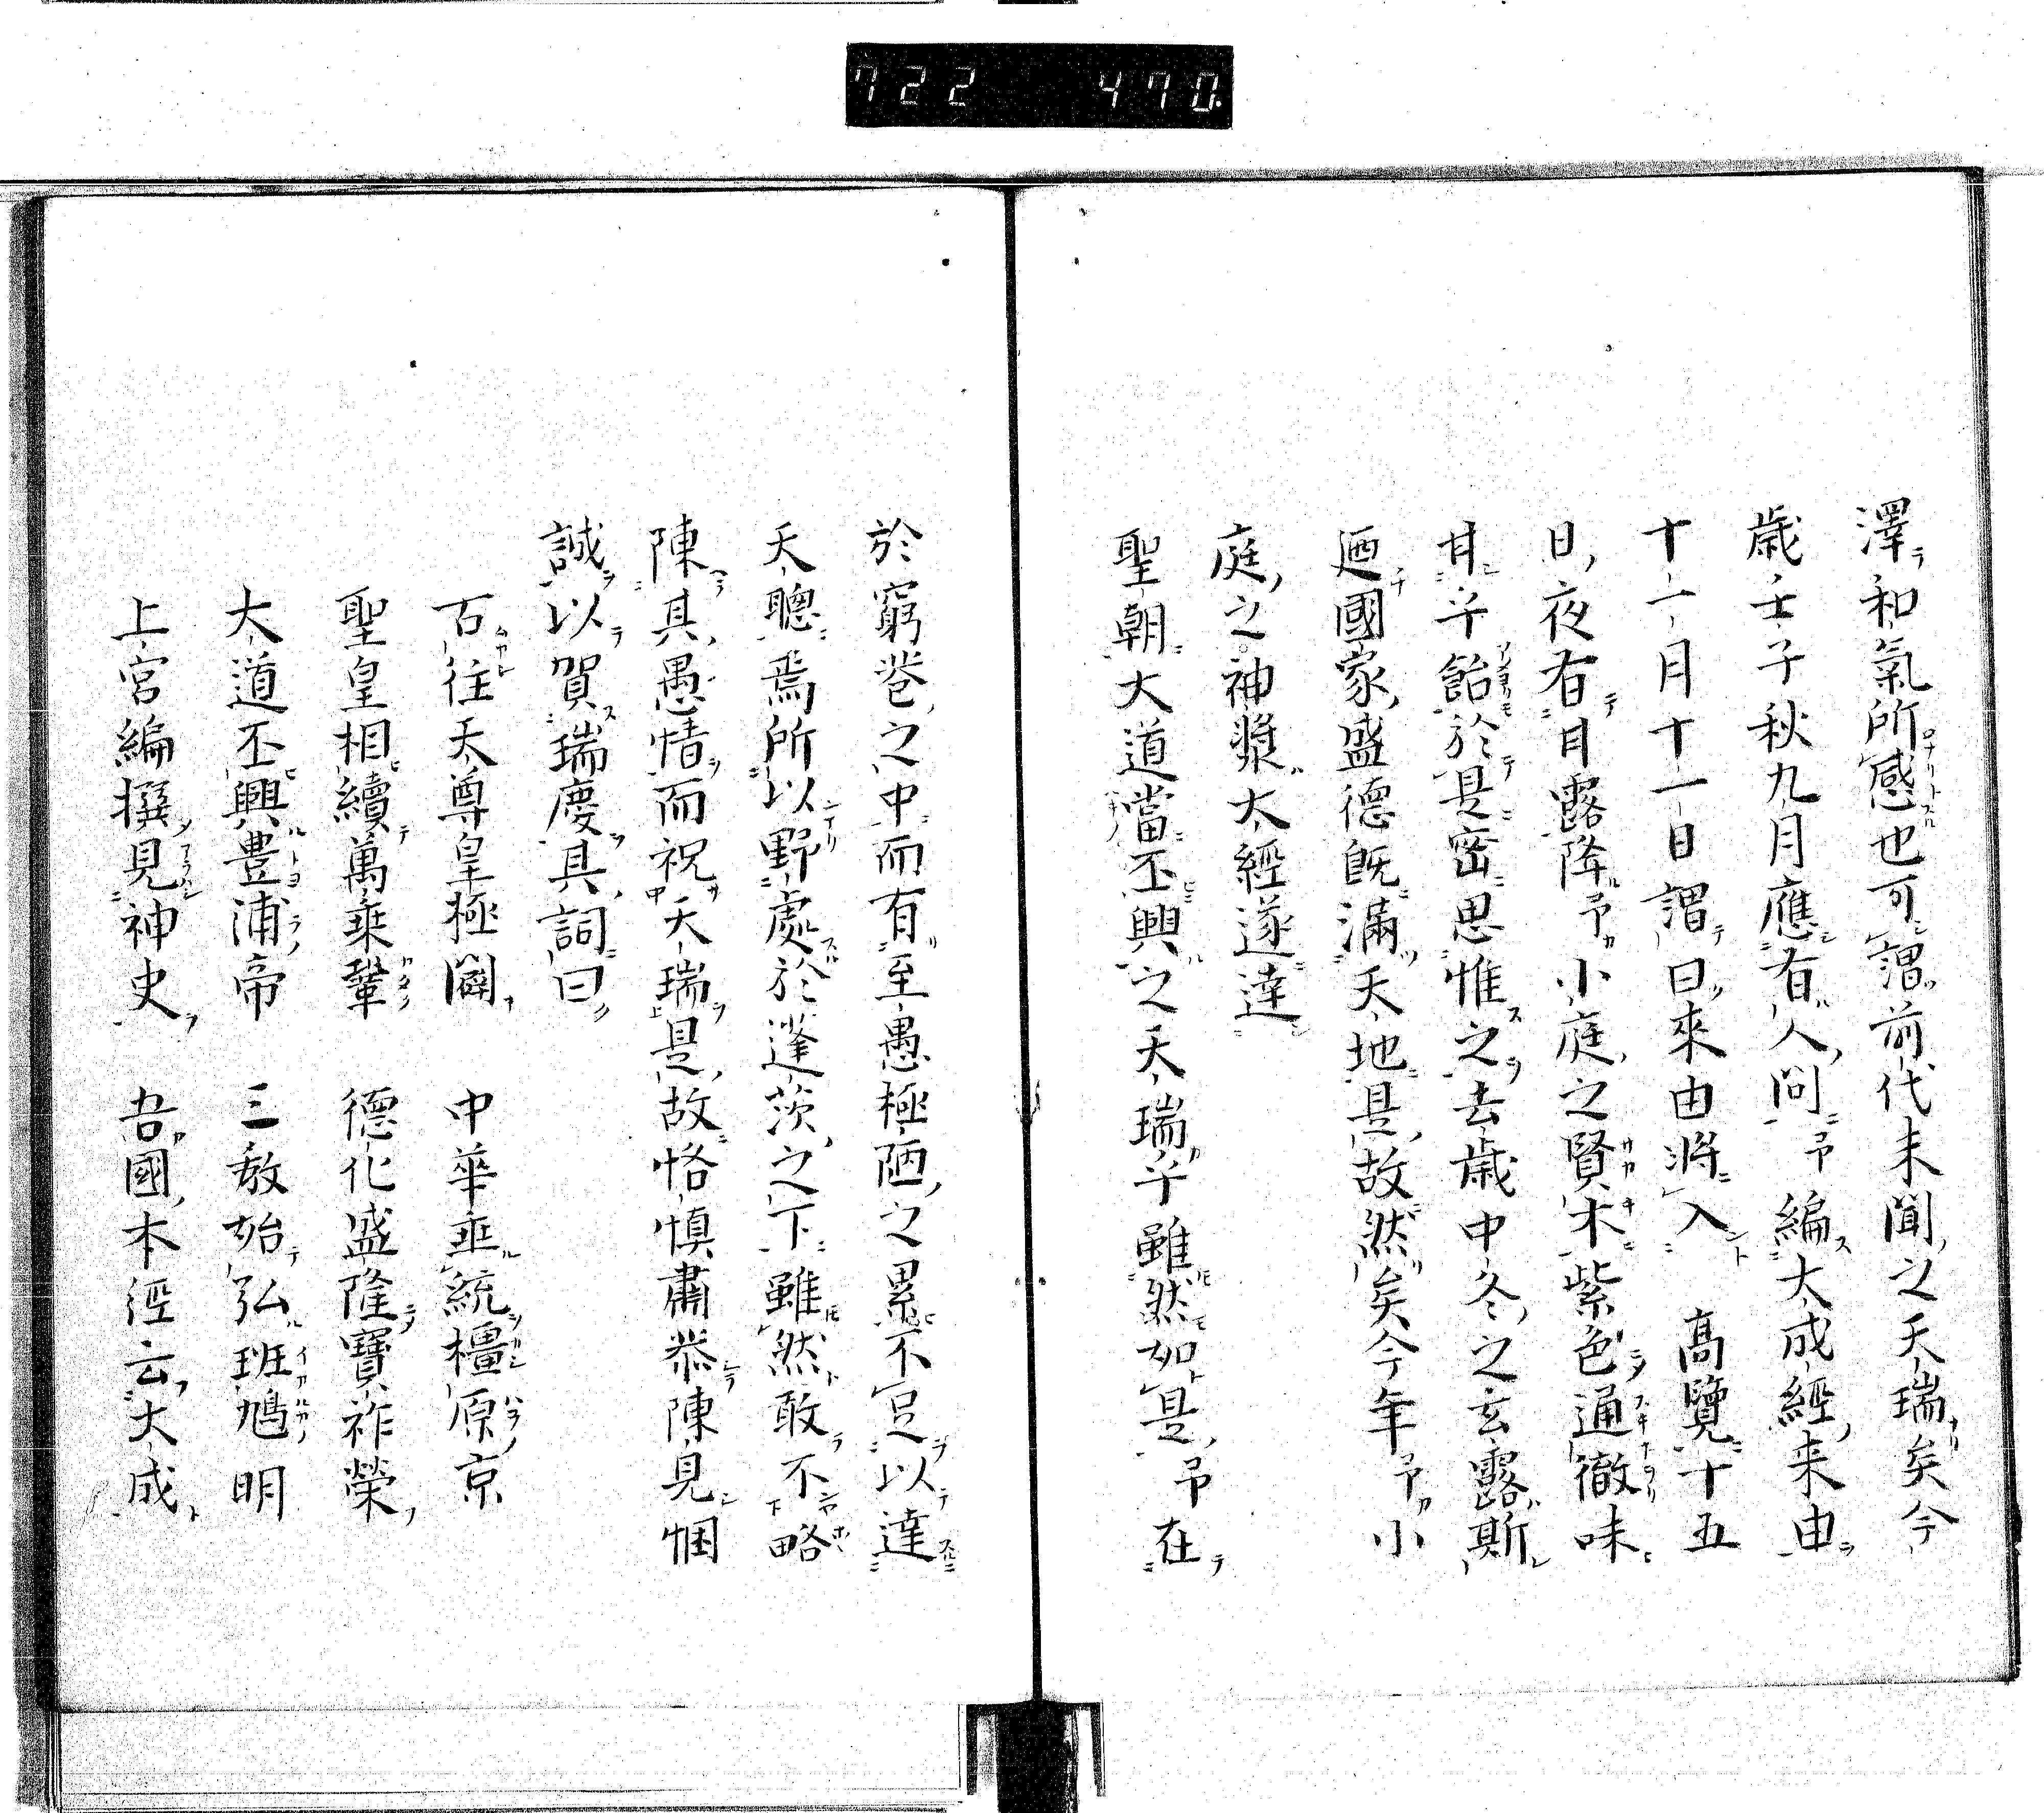 722 470.
澤和氣所感也可謂前代未聞之天瑞矣今
歳壬子秋九月應有人問予編大成經来由
十一月十一日謂曰來由將入 高覽十五
日夜有甘露降予小庭之賢木紫色通徹味
甘乎飴於是密思惟之去歳中冬之玄露斯
廼國家盛德既滿天地是故然矣今年予小
庭之神漿大經遂達
聖朝大道當丕興之天瑞乎雖然如是予在
於窮巷之中而有至愚極陋之累不足以達
天聰焉所以野處於蓬茨之下雖然敢不略
陳其愚情而祝天瑞是故恪慎肅恭陳見悃
誠以賀瑞慶其詞曰
古往天尊皇極闢 中華垂統橿原京
聖皇相續萬乗鞏 德化盛隆寶祚榮
大道丕興豊浦帝 三教始弘班鳩明
上宮編撰見神史 吾國本經云大成